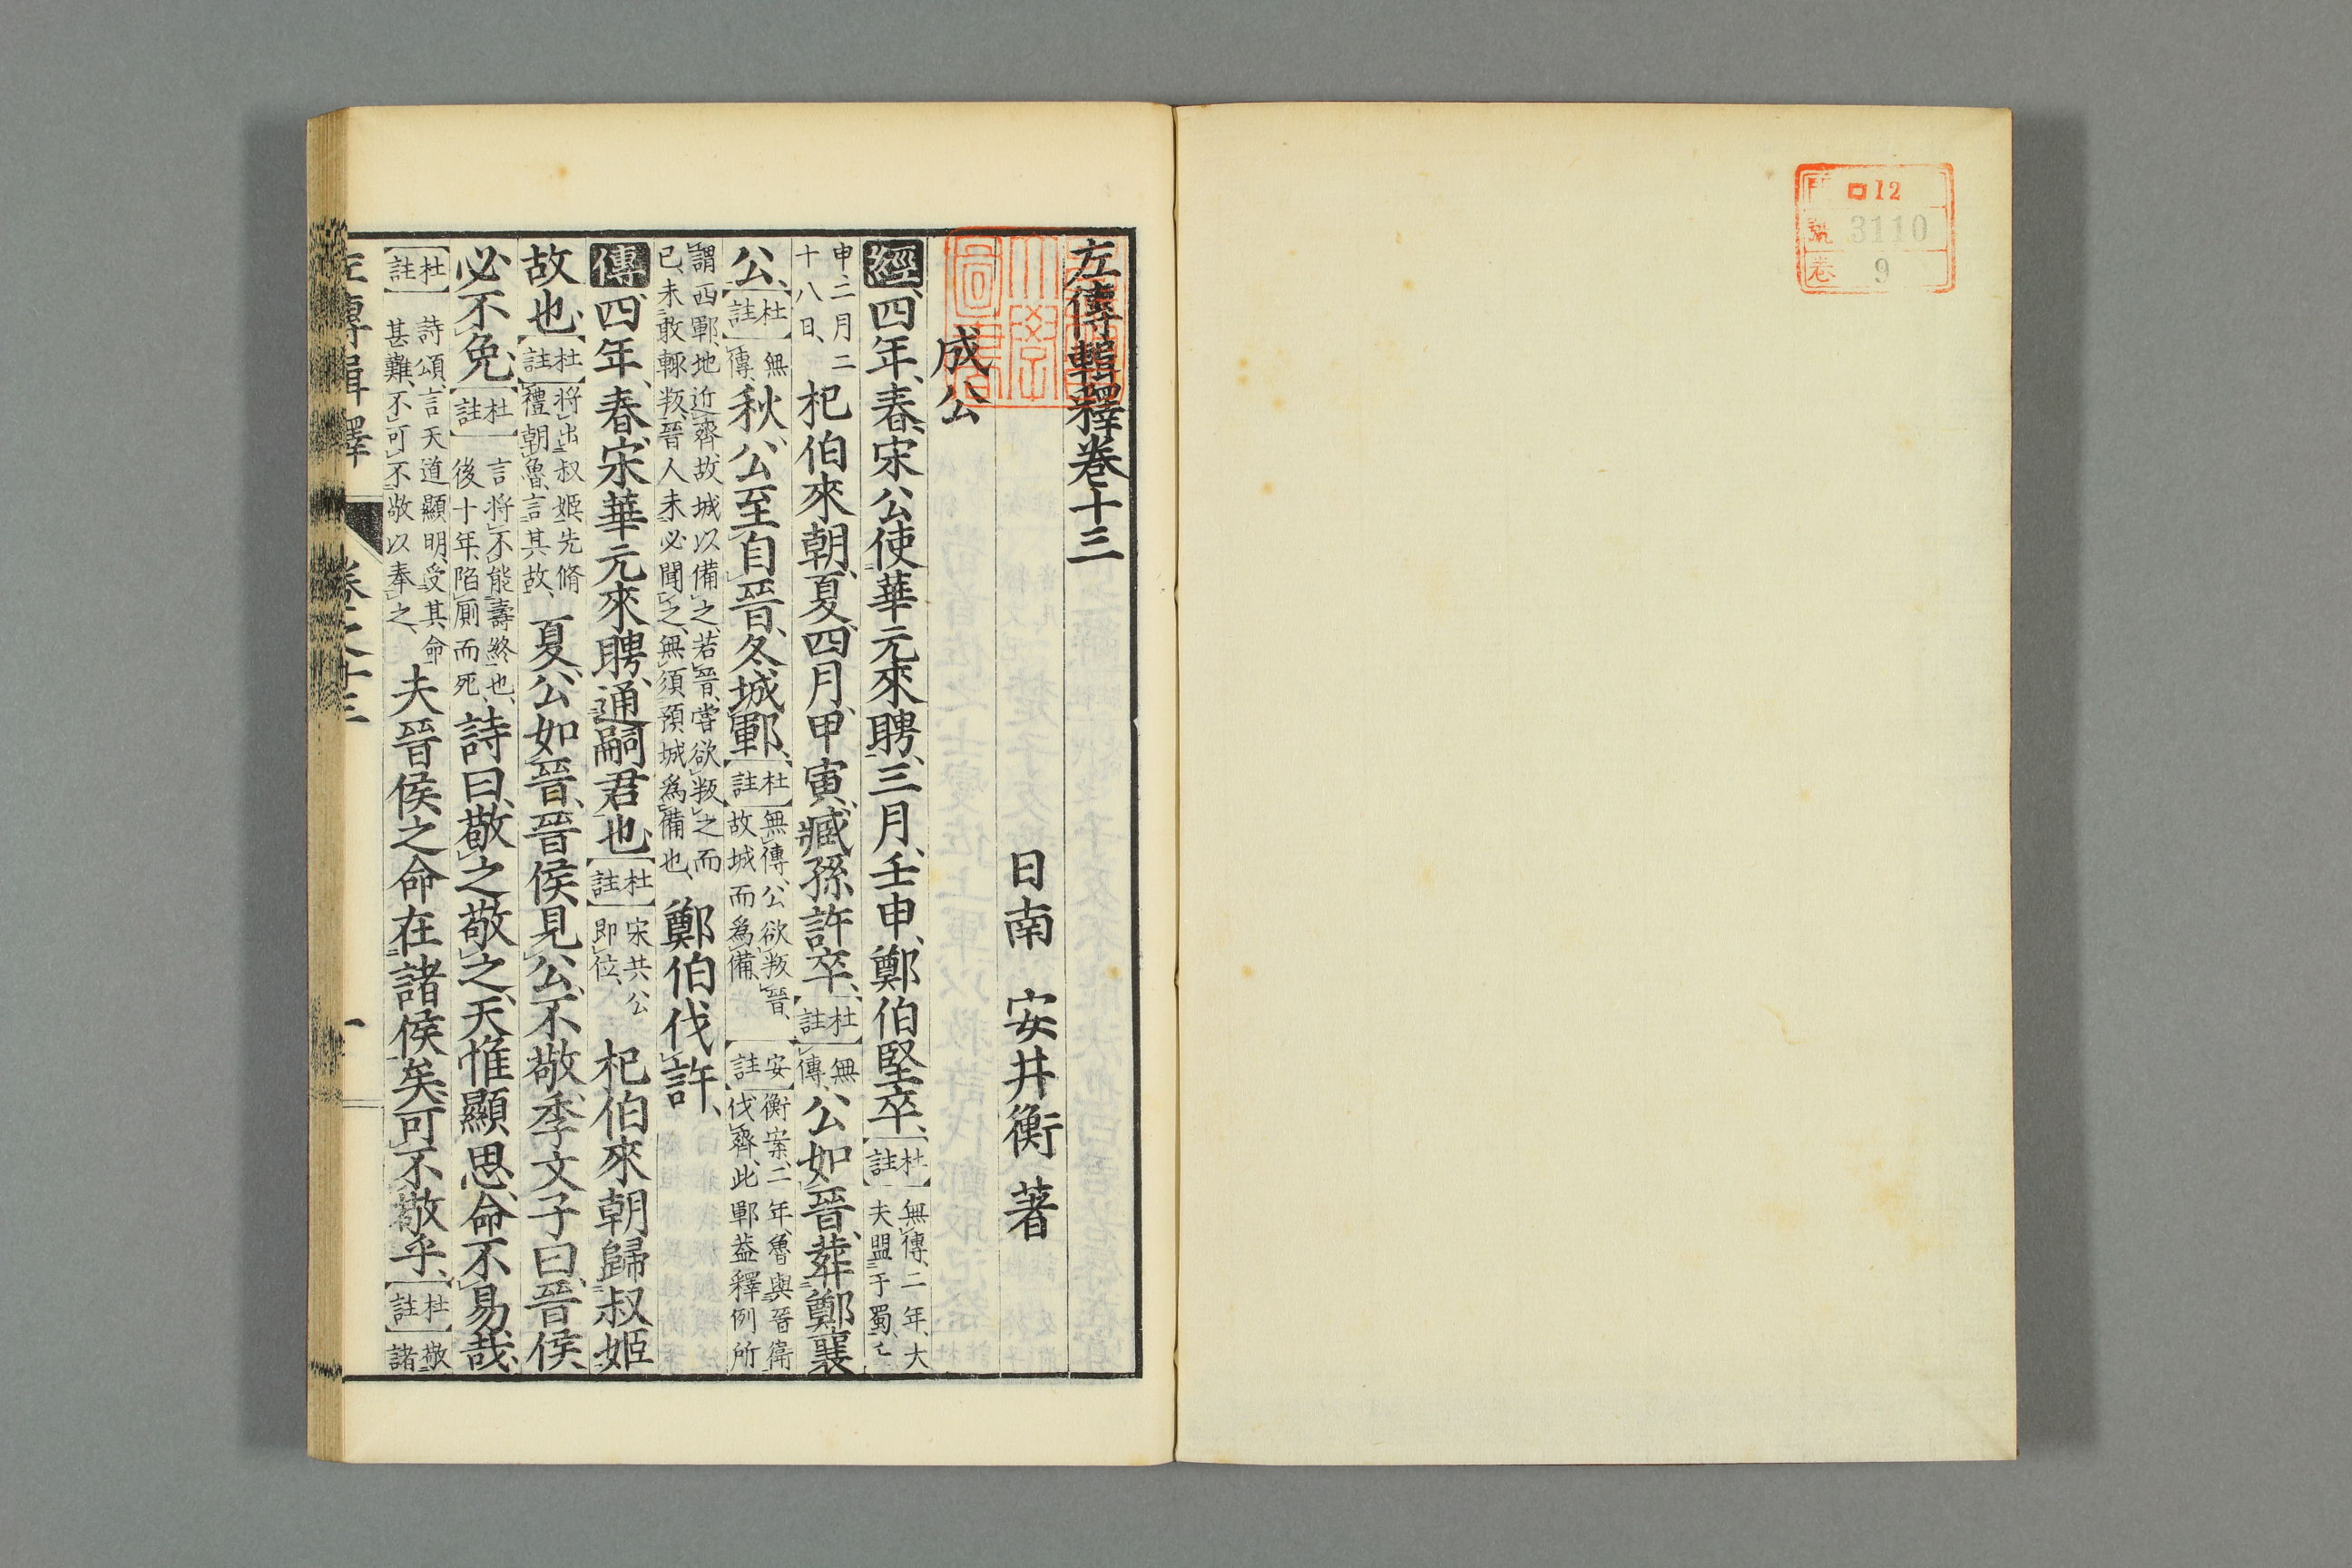 ロ12
號 3110
卷 9
左傳輯釋卷十三
日南 安井衡 著
成公
經四年、春、宋公使華元來聘、三月、壬申、鄭伯堅卒、【杜註】無傳、二年、大夫盟于蜀、壬
申、二月二十八日、杞伯來朝、夏、四月、甲寅、臧孫許卒、【杜註】無傳、公如晉、葬鄭襄
公、【杜註】無傳、秋、公至自晉、冬、城鄆、【杜註】無傳、公欲叛晉、故城而爲備、【安註】衡案、二年、魯與晉衞伐齊、此鄆葢釋例所
謂西鄆、地近齊、故城以備之、若晉、嘗欲叛之而已、未敢輙叛、晉人未必聞之、無須預城爲備也、鄭伯伐許、
傳四年、春、宋華元來聘、通嗣君也、【杜註】宋共公即位、杞伯來朝、歸叔姬
故也、【杜註】將出叔姬、先脩禮朝魯、言其故、夏、公如晉、晉侯見公、不敬、季文子曰、晉侯
必不免、【杜註】言將不能壽終也、後十年、陷厠而死、詩曰、敬之敬之、天惟顯思、命不易哉、
【杜註】詩頌、言天道顯明、受其命甚難、不可不敬以奉之、夫晉侯之命在諸侯矣、可不敬乎、【杜註】敬諸
左傳輯釋 卷之十三 一